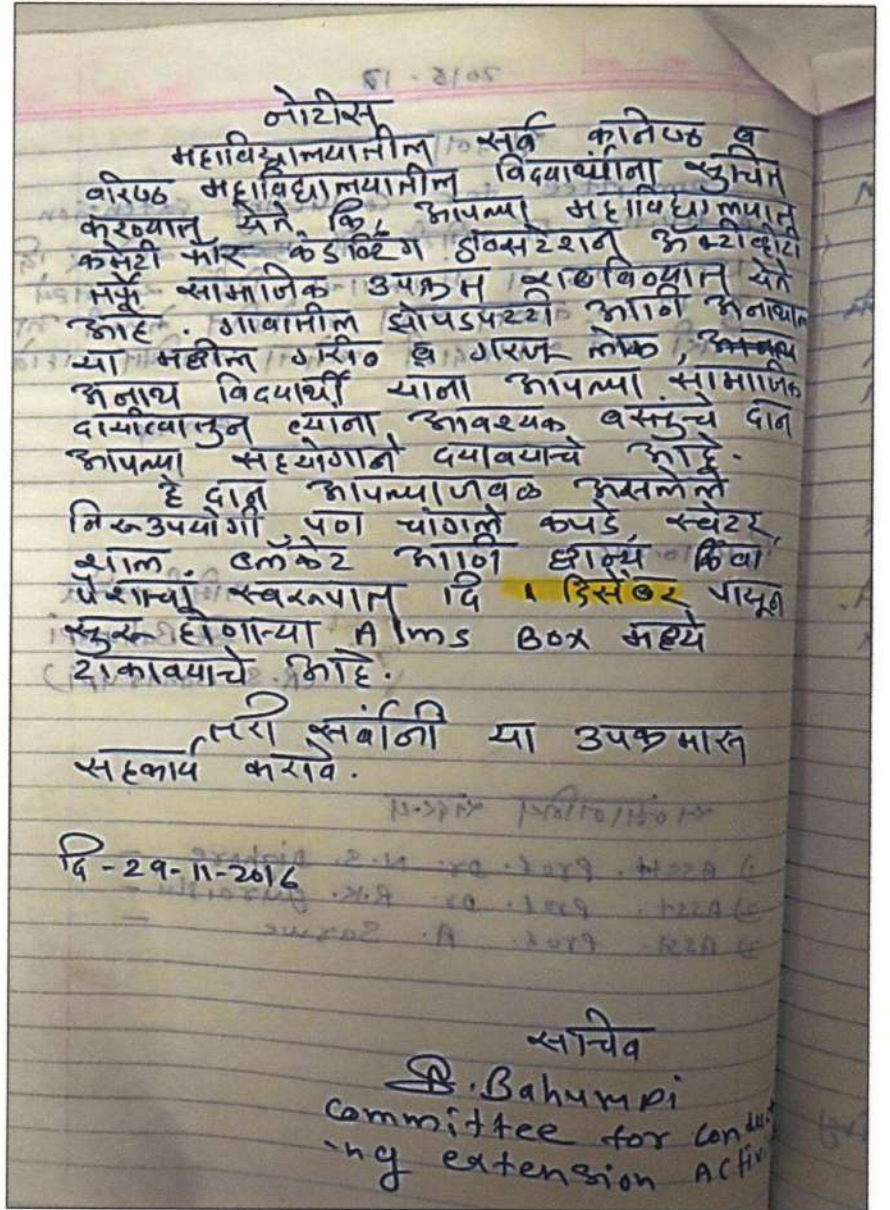 नोटीस
महाविद्यालयातील सर्व कनिष्ठ व
वरिष्ठ महाविद्यालयातील विद्यार्थ्यांना सुचित
करण्यात येते कि, आपल्या महाविद्यालयात
कमेटी फॉर कंडक्टिंग इक्सटेंशन अॅक्टीव्हीटी
तर्फे सामाजिक उपक्रम राबविण्यात येते
आहे. गावातील झोपडपट्टी आणि अनाथालय
या मधील गरीब व गरजू लोक,
अनाथ विद्यार्थी यांना आपल्या सामाजिक
दायीत्वातुन त्यांना आवश्यक वस्तुचे दान
आपल्या सहयोगाने द्यावयाचे आहे.
हे दान आपल्याजवळ असलेले
निरूउपयोगी पण चांगले कपडे, स्वेटर,
शाल, ब्लँकेट आणि धान्य किंवा
पैशाच्या स्वरूपात दि १ डिसेंबर पासून
सुरू होणाऱ्या Alms Box मध्ये
टाकावयाचे आहे.
तरी सर्वांनी या उपक्रमास
सहकार्य करावे.
दि - 29-11-2016
सचिव
Bahurupi
committee for conduc
-ng extension Activ